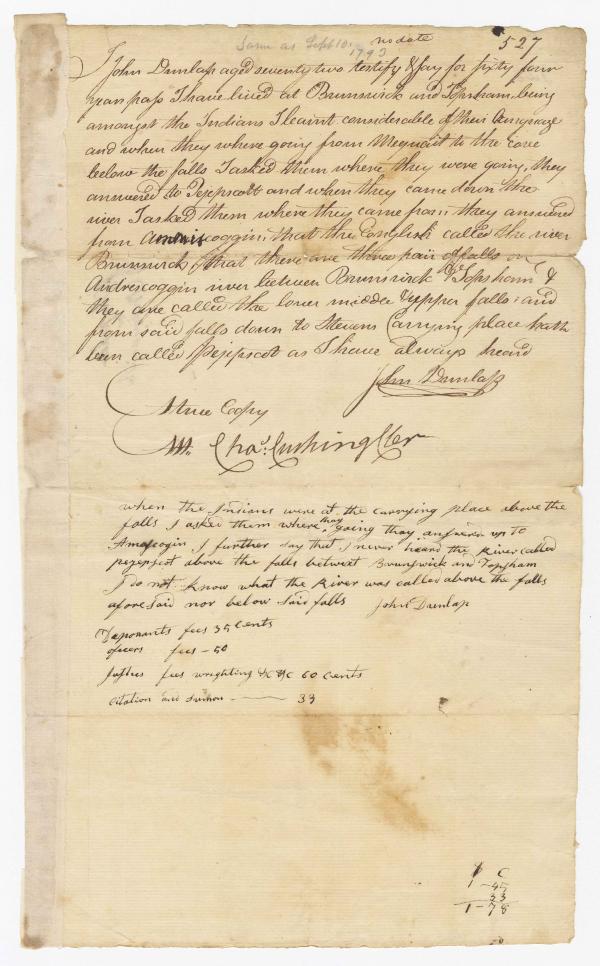 Same as Sept 10. 1793
no date
527
I John Dunlap aged seventy two testify & say for sixty four
years past I have lived at Brunswick and Topsham, being
amongst the Indians I learnt considerable of their language
and when they where going from Mequait to the cove
below the falls I asked them where they were going, they
answered to Pejepscott and when they came down the
river I asked them where they came from, they answered
from coggin, that the English called the river
Brunswick, that there are three pair of falls on
Androscoggin river between Brunswick & Topsham &
they are called the lower middle & upper falls, and
from said falls down to Stevens Carrying place hath
been called Pejepscot as I have always heard
John Dunlap
A true Copy
Att. Chas. Cushing Cler
when the Indians were at the carrying place above the
falls I asked them where thay going thay answerd up to
Amascogin I further say that I never heard the River called
pejepscot above the falls betweat Brunswick and Topsham
I do not know what the River was called above the falls
afore Said nor below Said falls John Dunlap
Daponants fees 35 Cents
ofecers fees - 50
Justies fees wrighting &C &C 60 cents
Citation and Sumon - 33
C
1 - 45
33
1 - 78